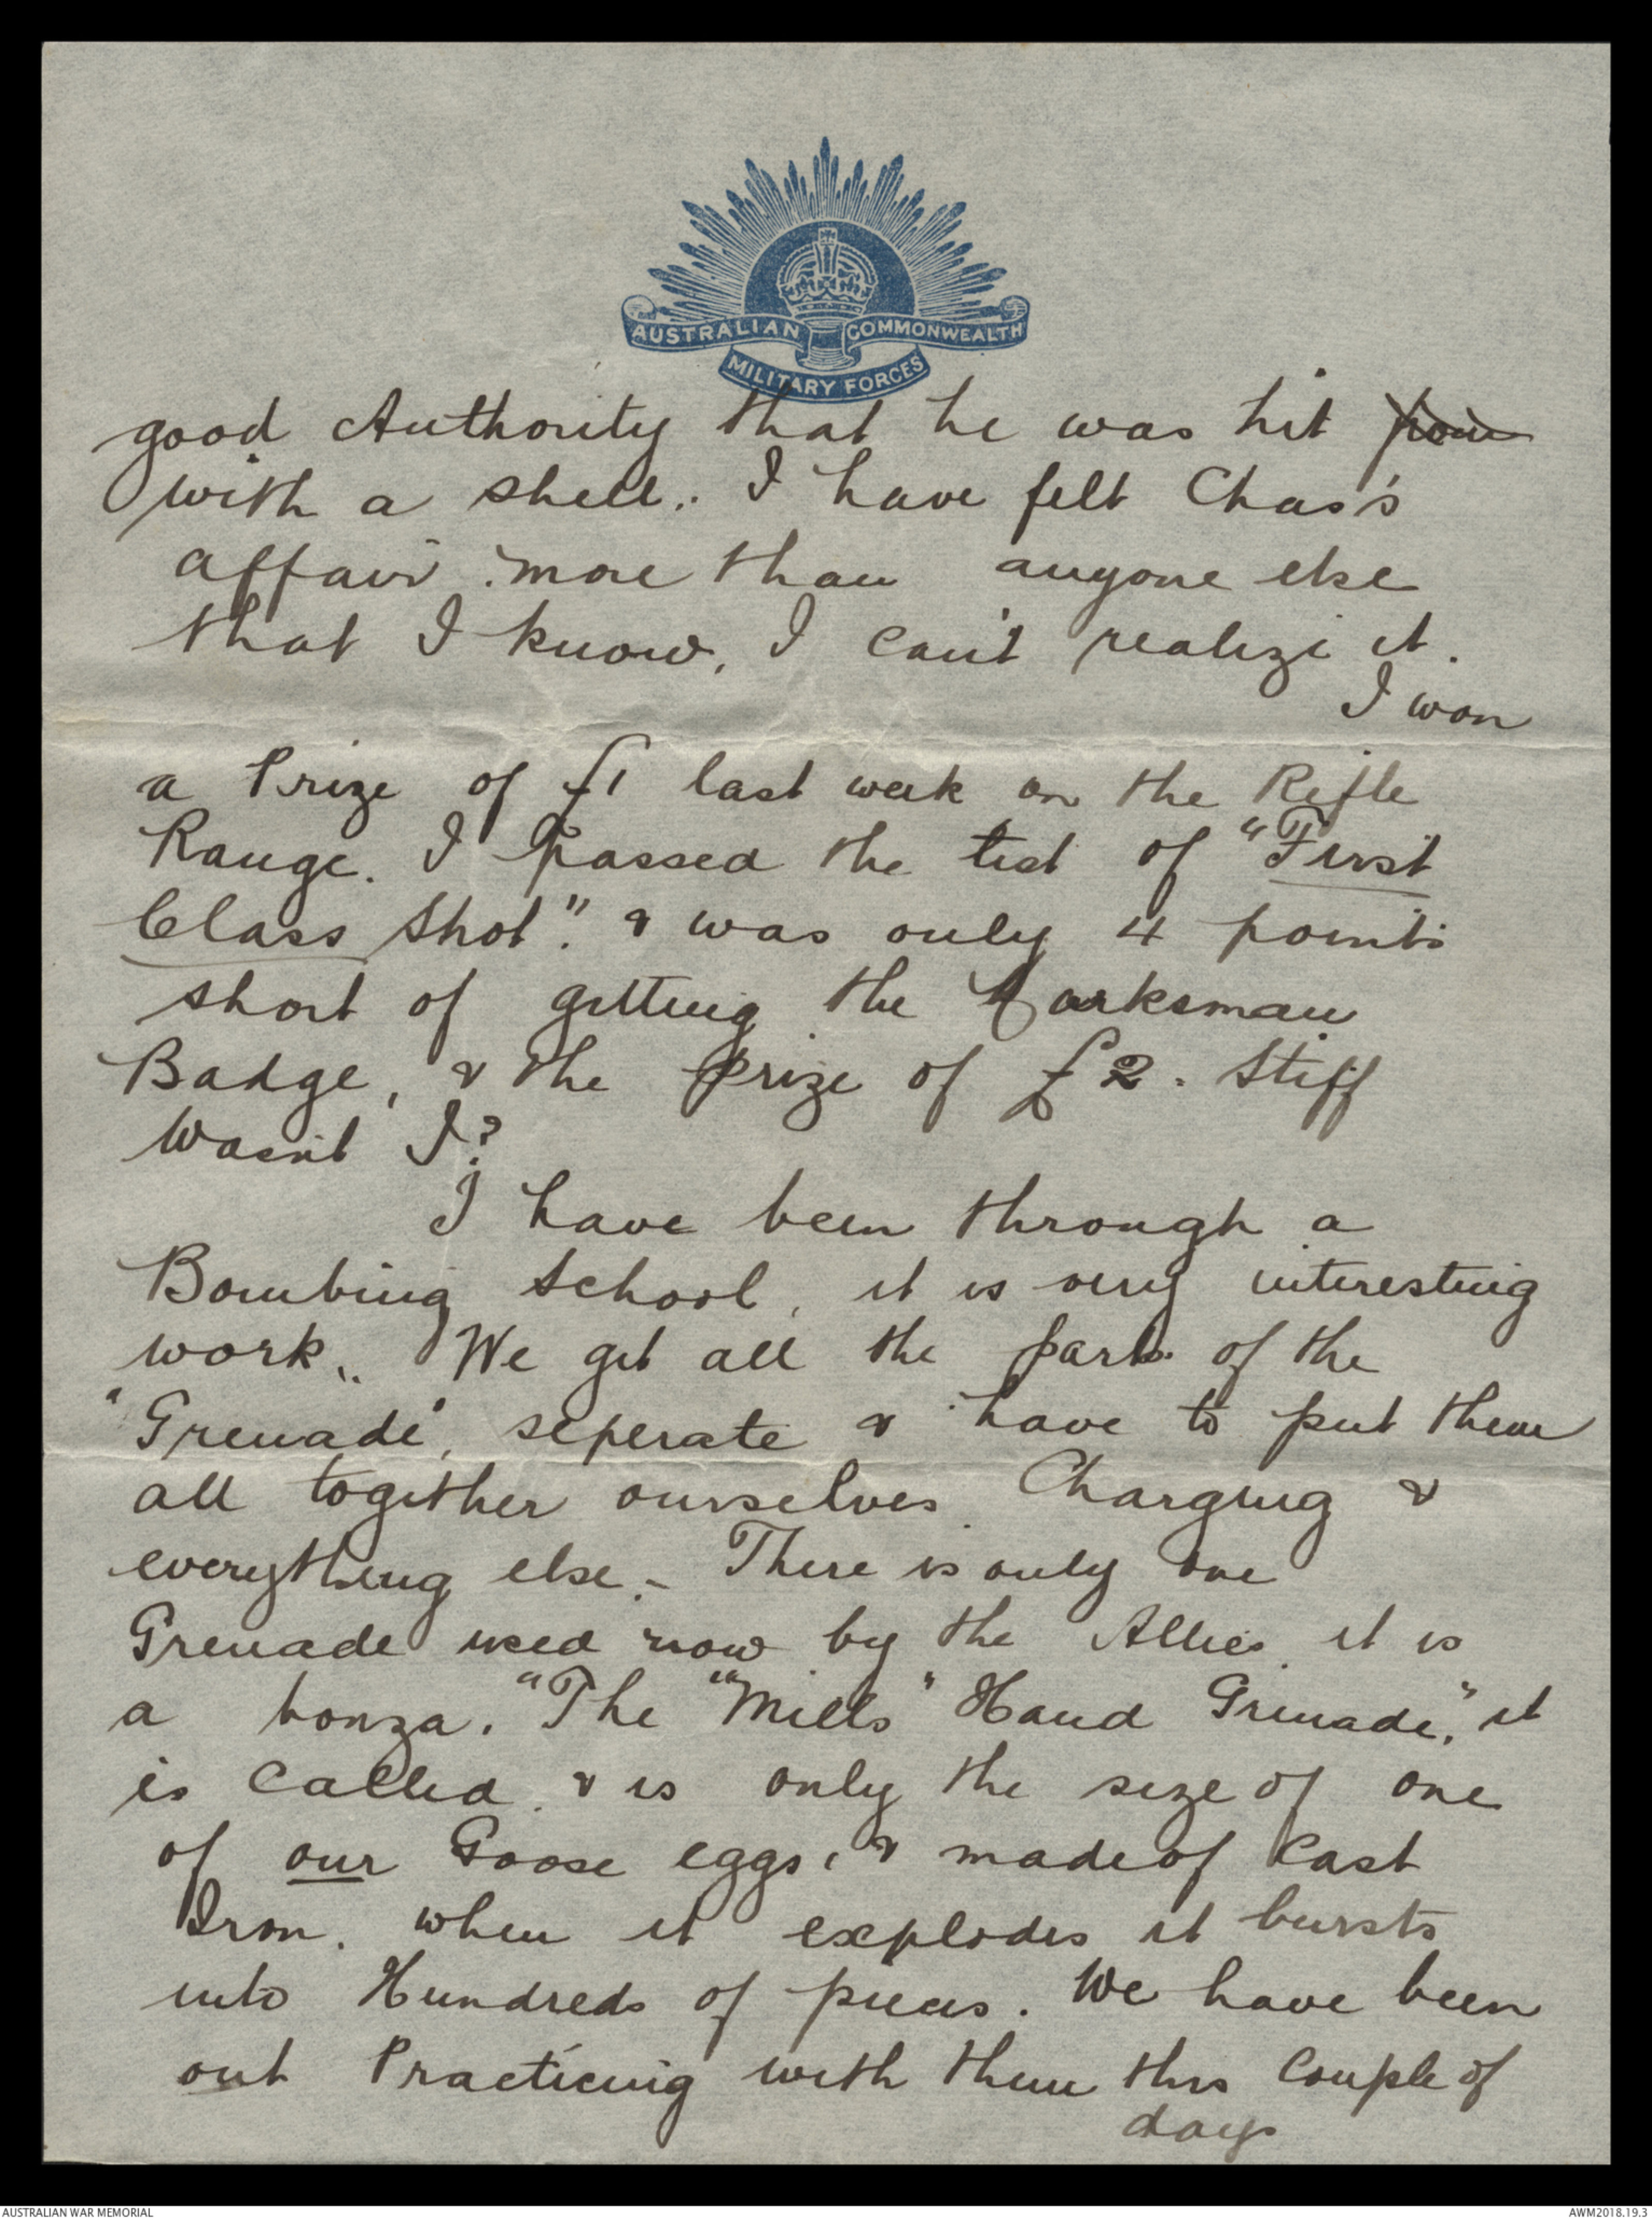 AUSTRALIAN COMMONWEALTH
MILITARY FORCES
good Authority that he was hit
with a shell. I have felt Chas's
affair more than anyone else
that I know, I can't realize it.
I won
a Prize of £1 last week on the Rifle
Range. I passed the test of "First
Class Shot". & was only 4 points
short of getting the Marksman
Badge, & the prize of £2. Stiff
wasn't I?
I have been through a
Bombing School, it is very interesting
work. We get all the parts of the
"Grenade", seperate & have to put them
all together ourselves. Charging &
everything else. - There is only one
Grenade used now by the Allies, it is
a bonza. "The "Mills" Hand Grenade," it
is called, & is only the size of one
of our Goose eggs, & made of Cast
Iron. when it explodes it bursts
into Hundreds of pieces. We have been
out Practicing with them this Couple of
days
AUSTRALIAN WAR MEMORIAL
AWM2018.19.3